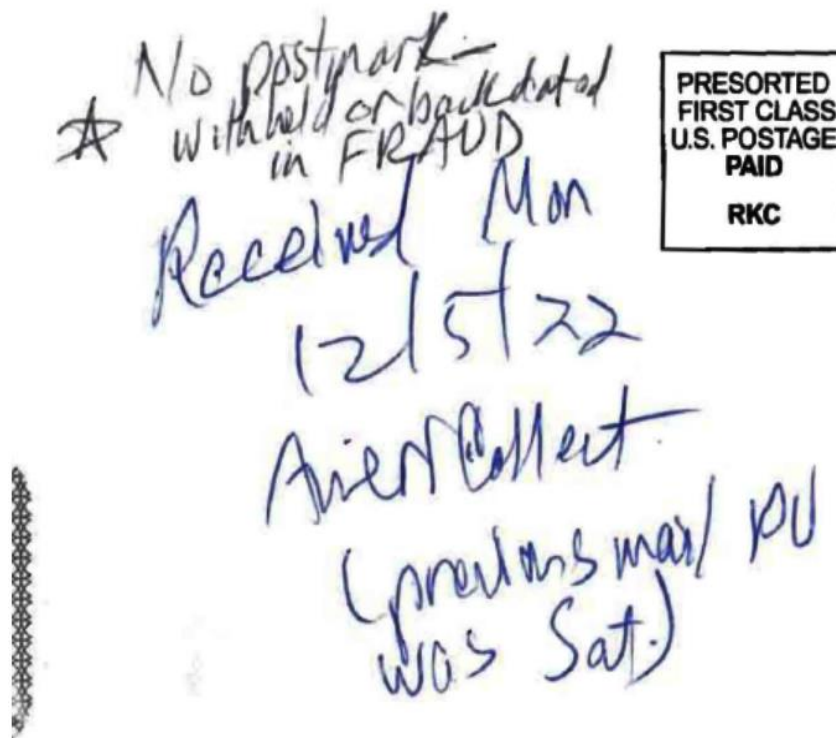 No postmark -
☆ withheld or backdated
in FRAUD
PRESORTED
FIRST CLASS
U.S. POSTAGE
PAID
RKC
Received Mon
12/5/22
Collect
(previous mail PU
was Sat.)